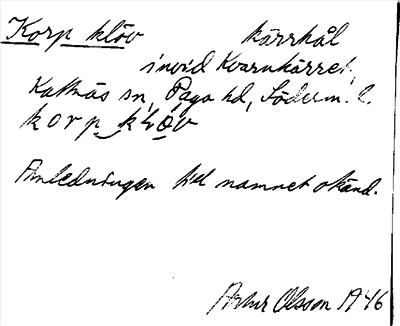 Korp klöv kärrhål
invid Kvarnkärret,
Kattnäs sn, Daga hd, Söderm. l.
korp klöv
Anledningen till namnet okänd.
Artur Olsson 1946